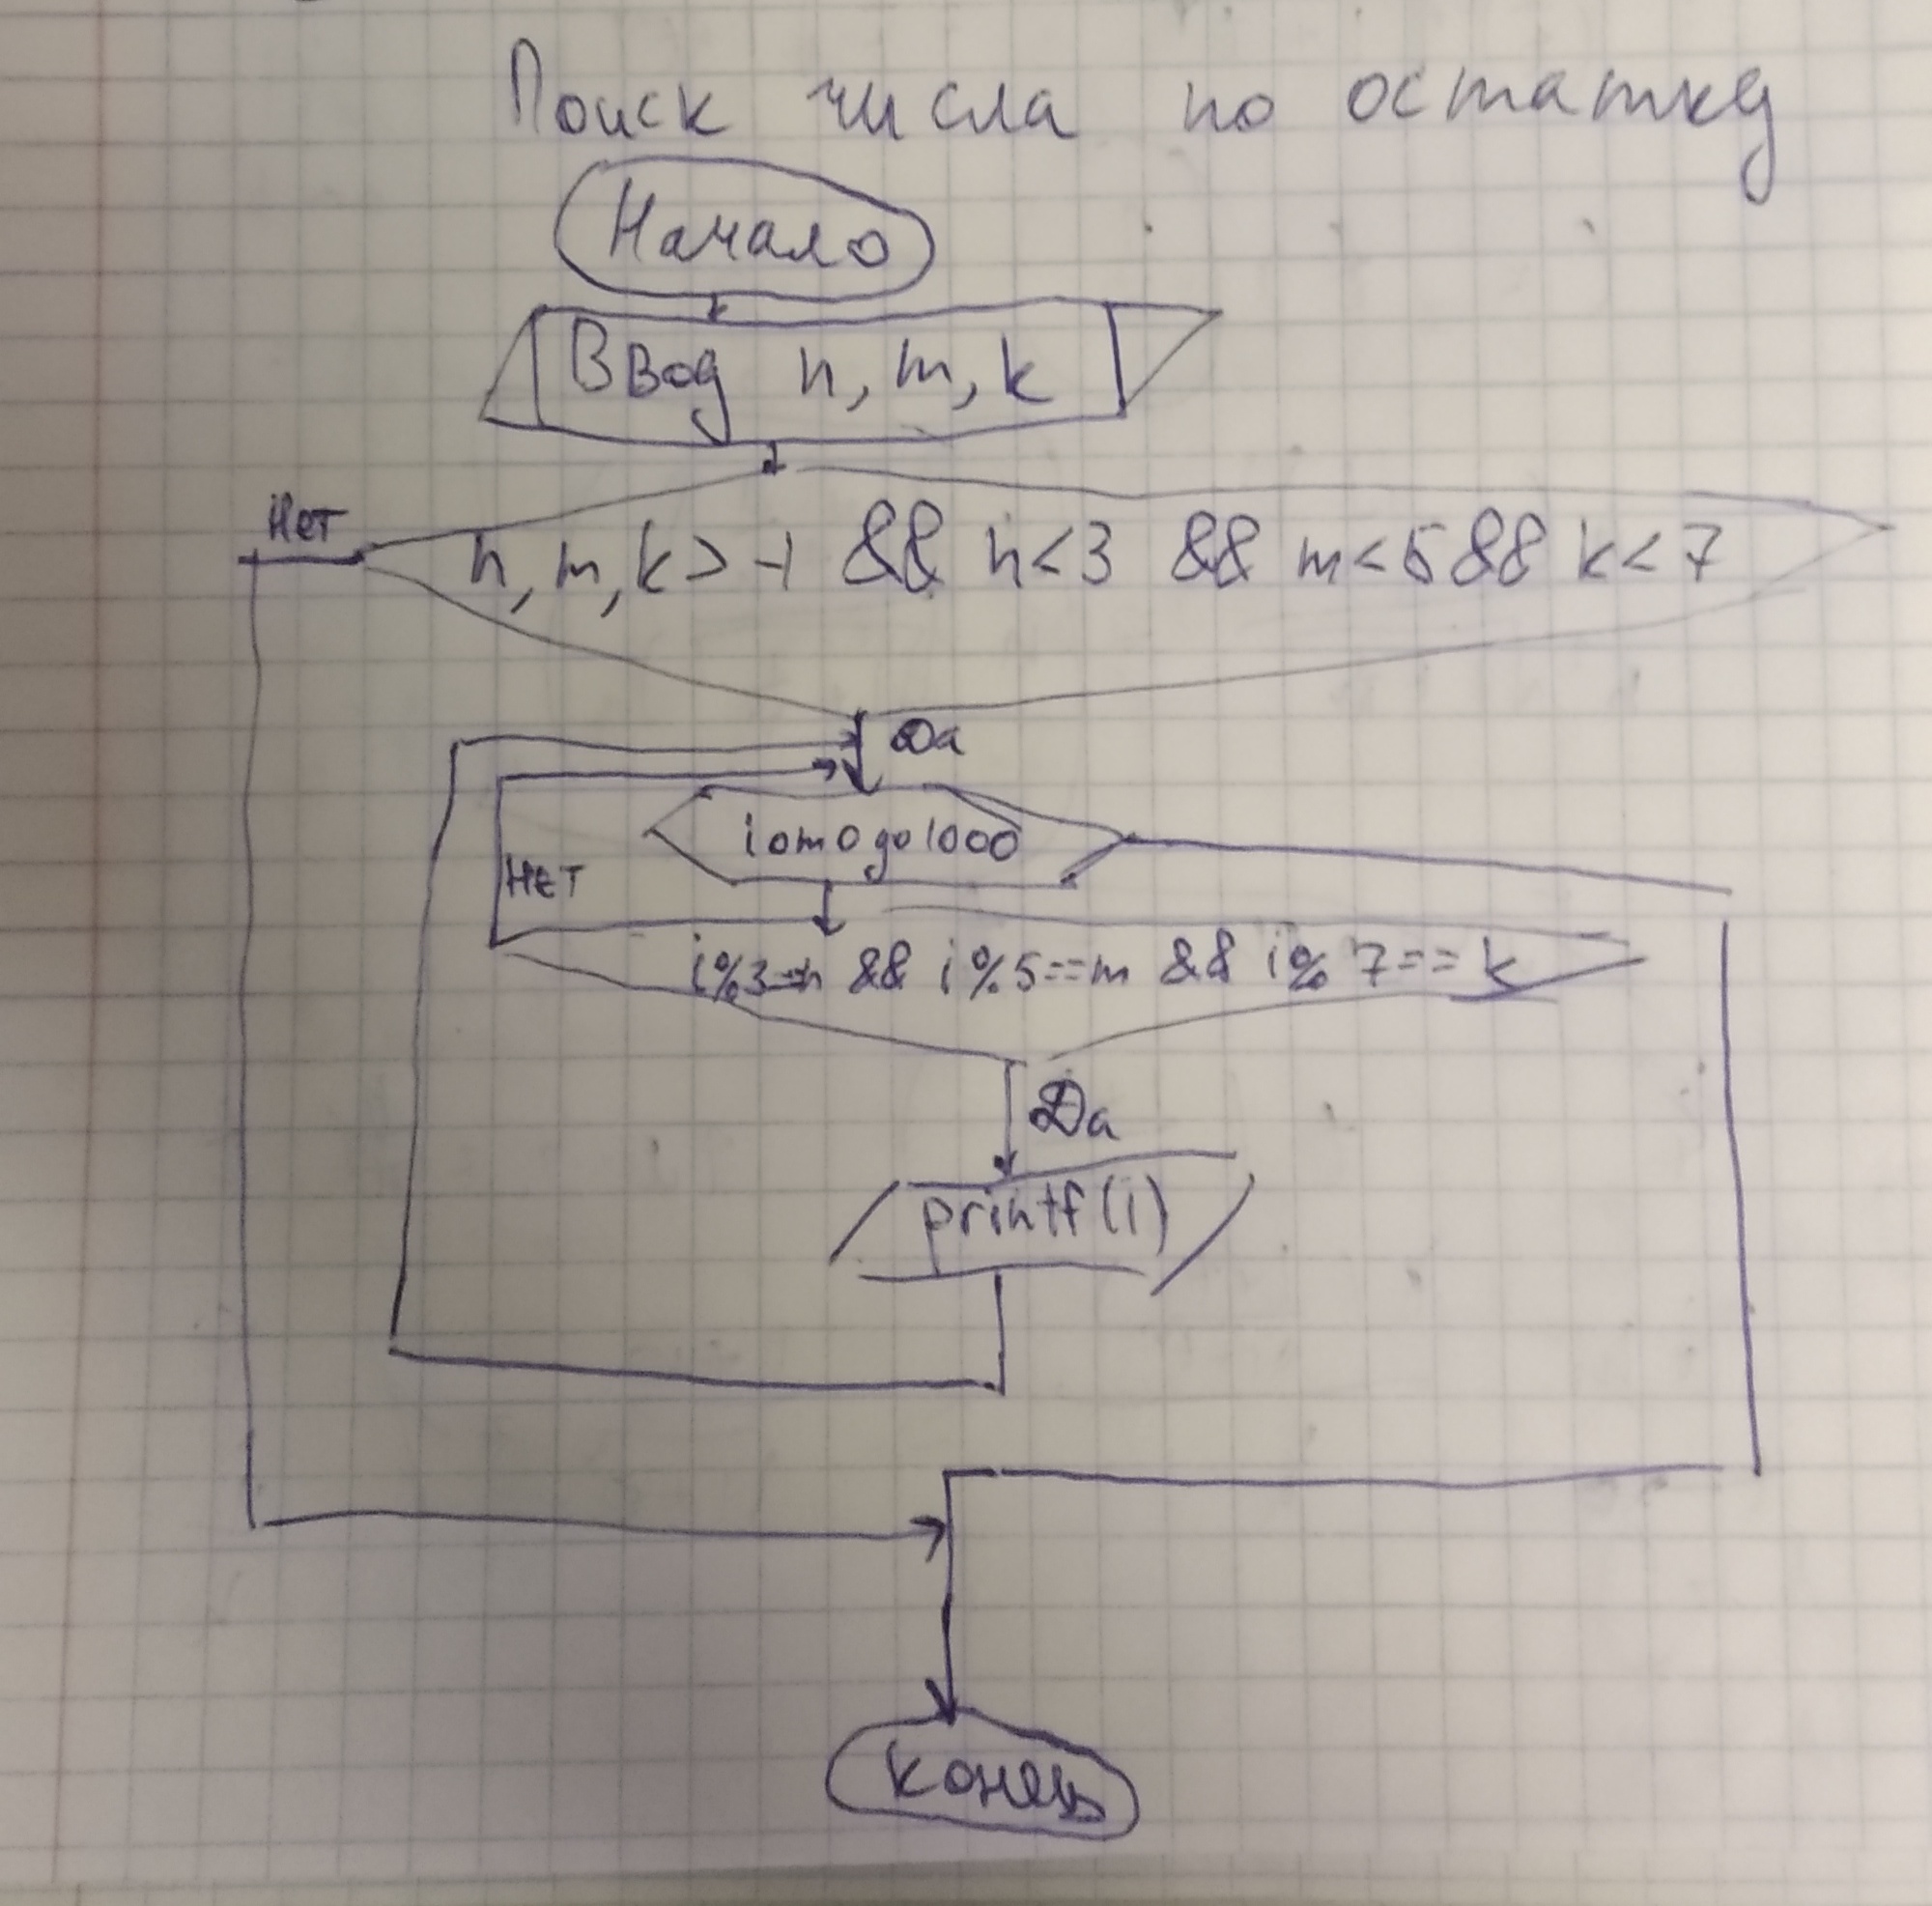 Поиск числа по остатку
Начало
Ввод n, m, k
Нет
n, m, k > -1 && n < 3 && m < 5 && k < 7
Да
i от 0 до 1000
НЕТ
i%3==n && i%5==m && i%7==k
Да
printf(i)
конец